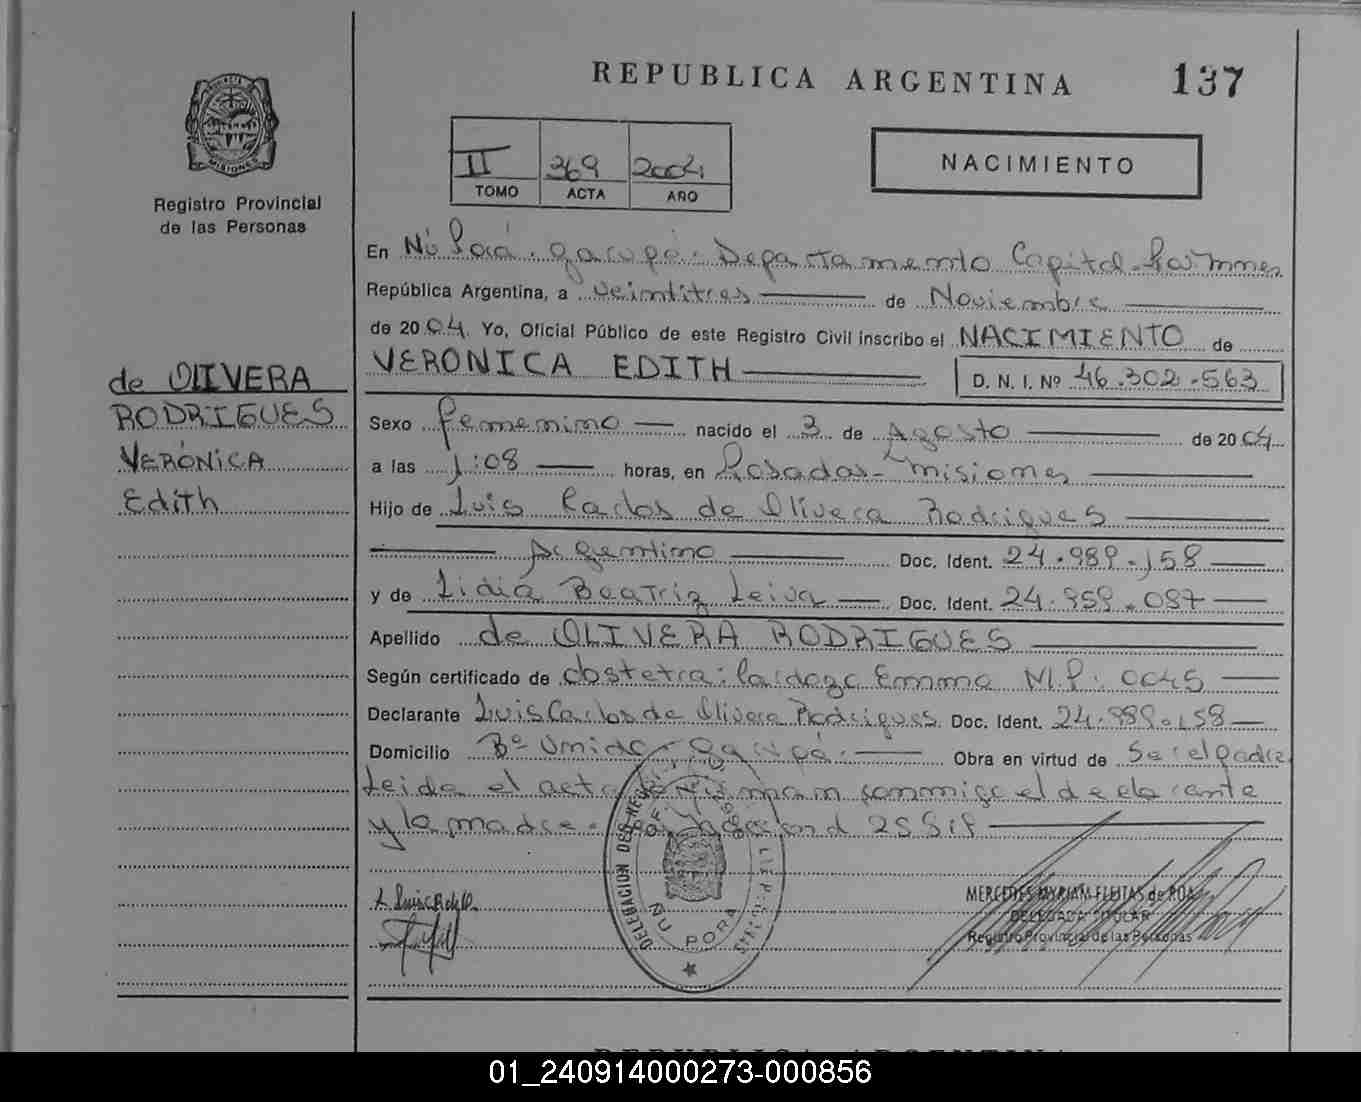 REPUBLICA ARGENTINA 137
MISIONES
Registro Provincial
de las Personas
II 369 2004
TOMO ACTA AÑO
NACIMIENTO
En Ñu Porá. Garupá. Departamento Capital
República Argentina, a veintitres de Noviembre
de 2004. Yo, Oficial Público de este Registro Civil inscribo el NACIMIENTO de
VERONICA EDITH D. N. I. Nº 46.302.563
de OLIVERA
RODRIGUES
VERÓNICA
Edith
Sexo femenino nacido el 3 de Agosto de 2004
a las 1:08 horas, en Posadas-misiones
Hijo de Luis Carlos de Olivera Rodrigues
Argentino Doc. Ident. 24.989.158
y de Lidia Beatriz Leiva Doc. Ident. 24.959.087
Apellido de OLIVERA RODRIGUES
Según certificado de obstetra: Cardozo Emma M.P: 0045
Declarante Luis Carlos de Olivera Rodrigues Doc. Ident. 24.989.158
Domicilio Bº unido. Garupá. Obra en virtud de Ser el padre
Leida el acta firman conmigo el declarante
y la madre.
DELEGACION DEL
ÑU PORA
MERCEDES MYRIAM FLEITAS de ROA
DELEGADA TITULAR
Registro Provincial de las Personas
REPUBLICA ARGENTINA
01_240914000273-000856